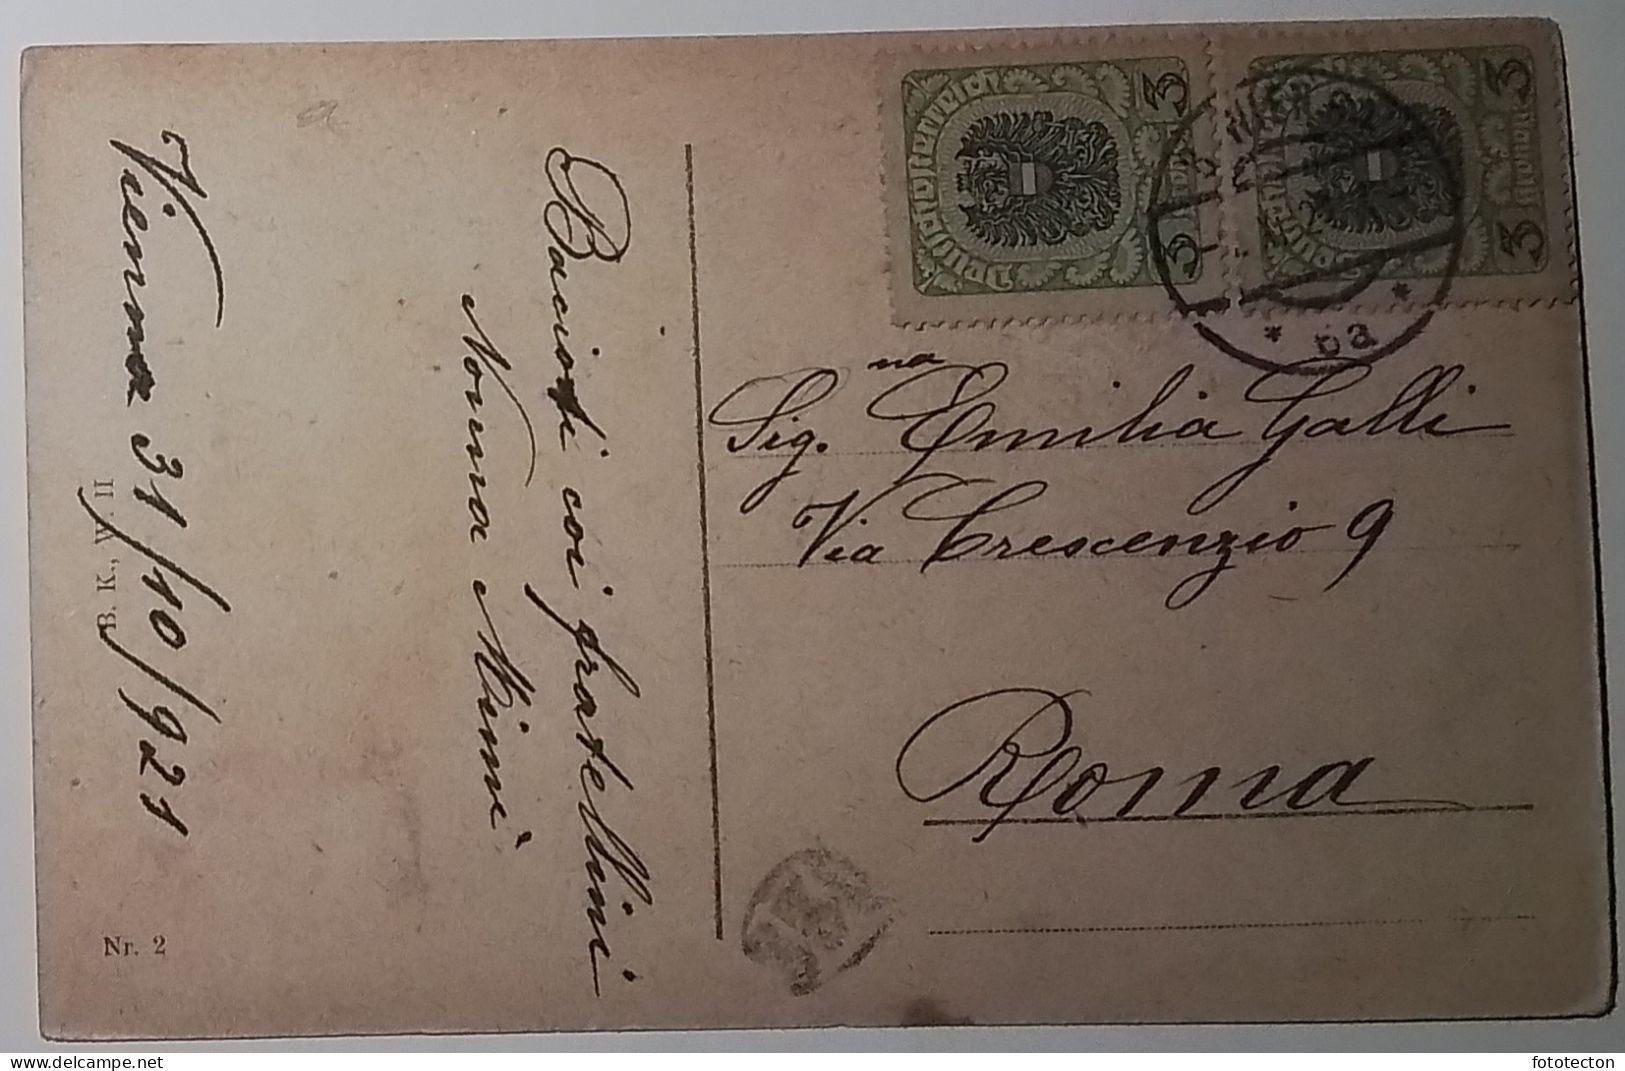 Vienna 31/10/921
Bacioti coi fratellini
Nonna Mimì
B. K., W. II
Nr. 2
Deutschösterreich
3 3
Kronen
3 3
Kronen
WIEN
* *
Sig.na Emilia Galli
Via Crescenzio 9
Roma
delcampe.net
fototecton